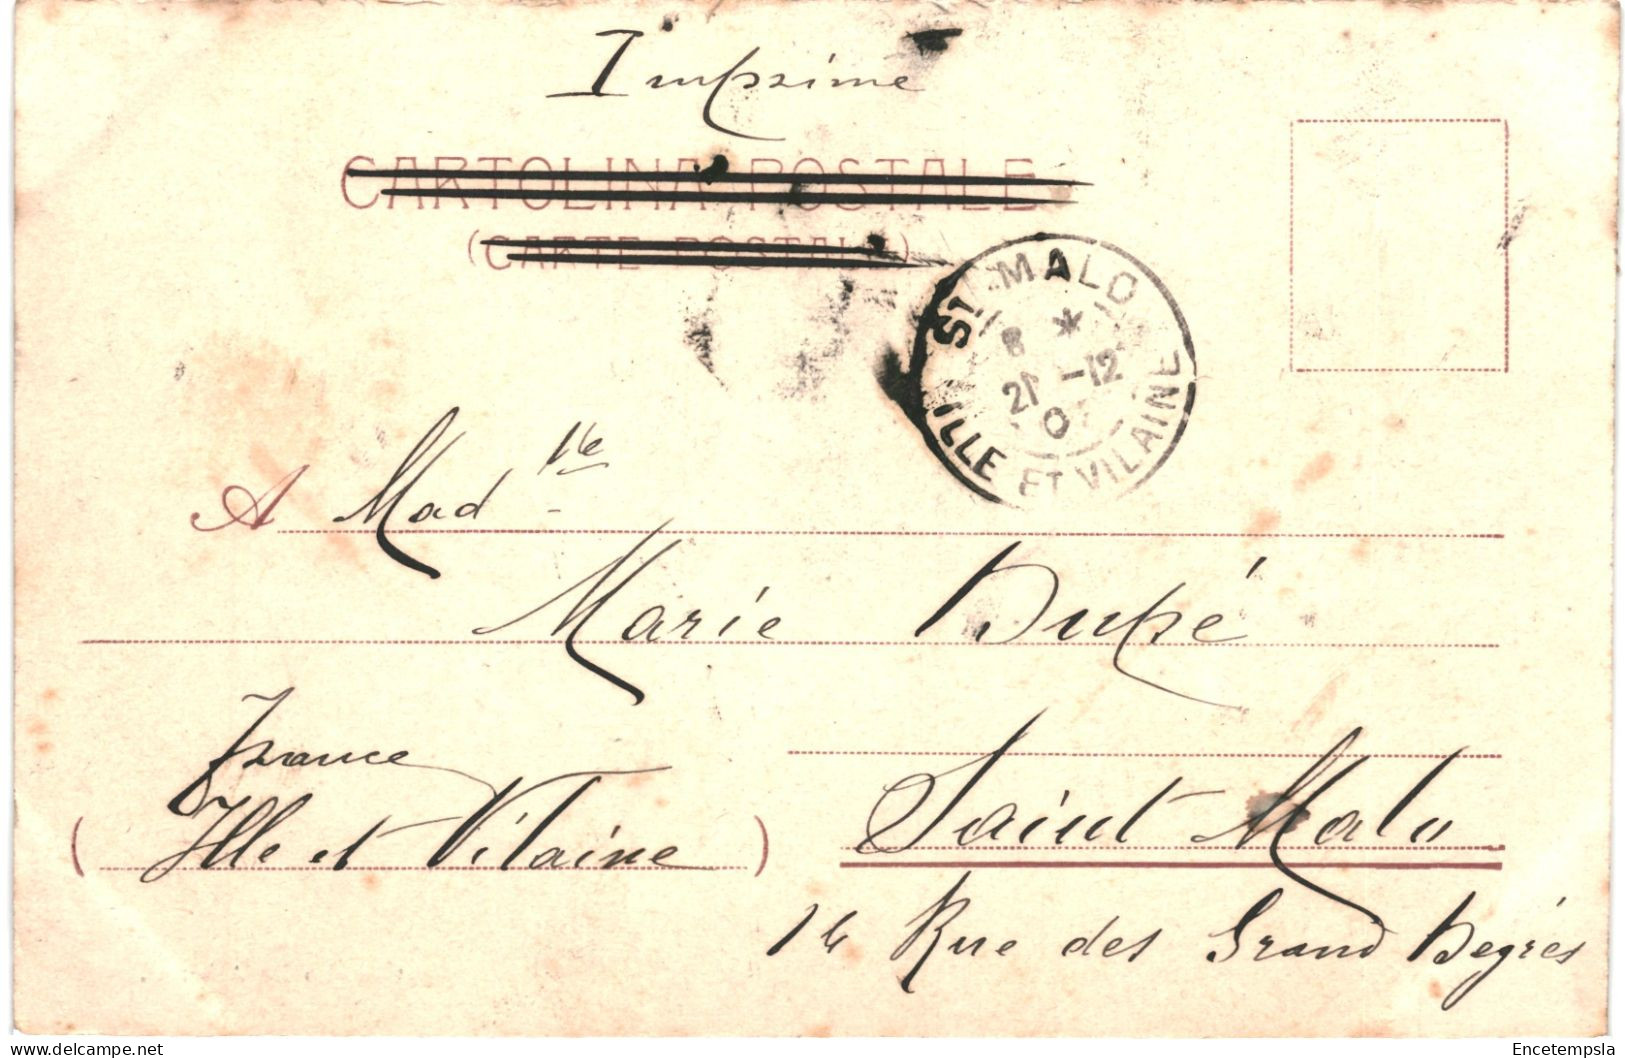 Imprime
CARTOLINA POSTALE
(CARTE POSTALE)
ST MALO
8 *
21 -12
0
ILLE ET VILAINE
A Mad lle
Marie Dupé
France
(Ille et Vilaine)
Saint Malo
16 Rue des Grand Degrés
delcampe.net
Encetempsla